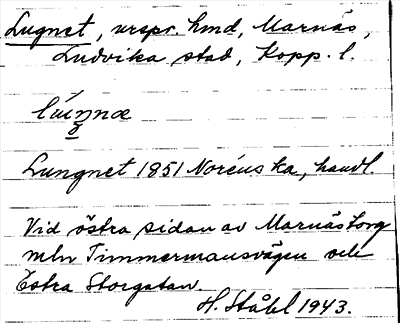 Lugnet, urspr. hmd, Marnäs,
Ludvika stad, Kopp. l.
Lungnet 1851 Norénska, handl.
Vid östra sidan av Marnästorg
mln Timmermansvägen och
Östra Storgatan.
H. Ståhl 1943.